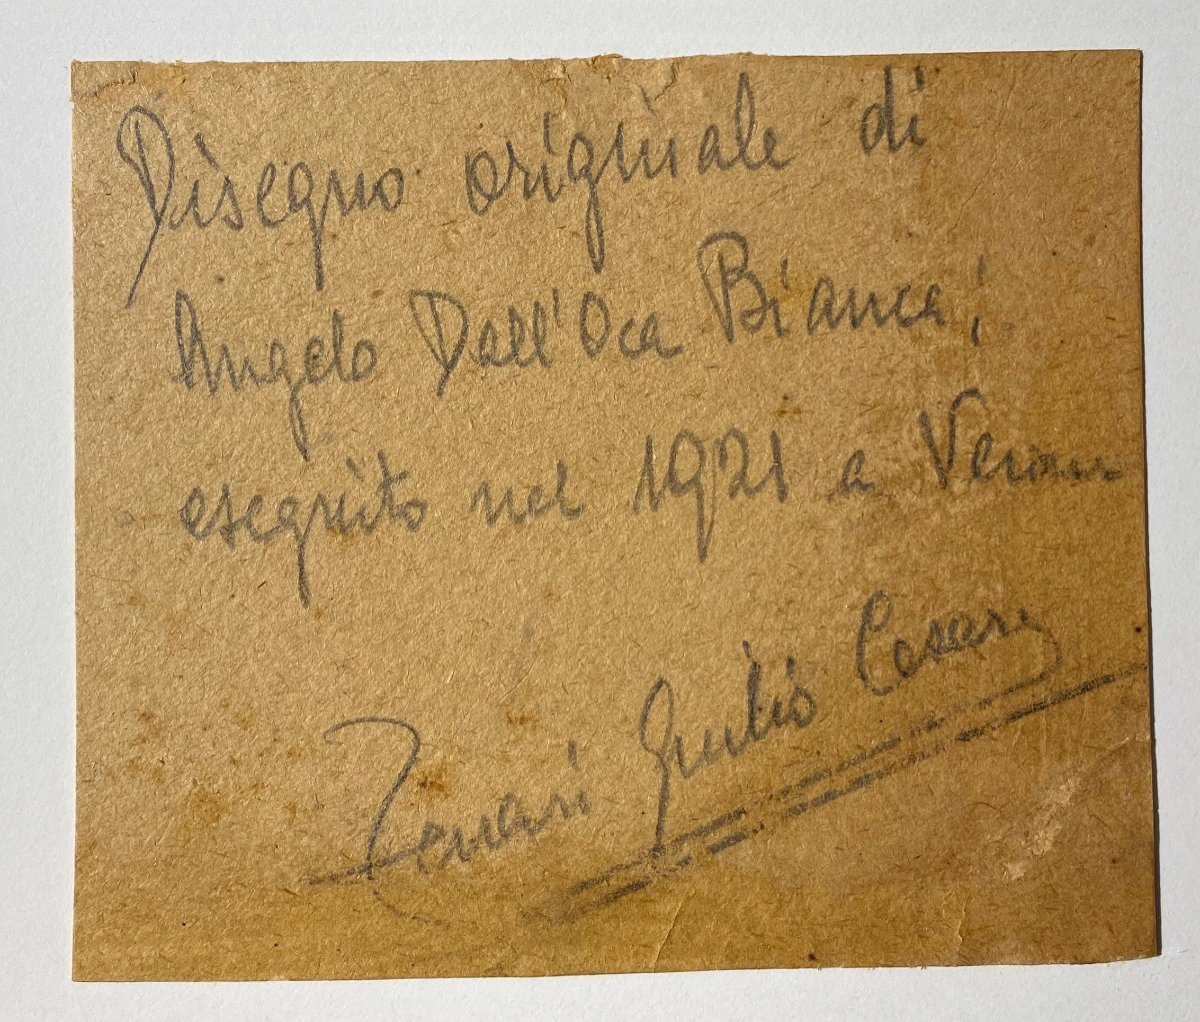 Disegno originale di
Angelo Dall'Oca Bianca;
eseguito nel 1921 a Verona
Giulio Cesare